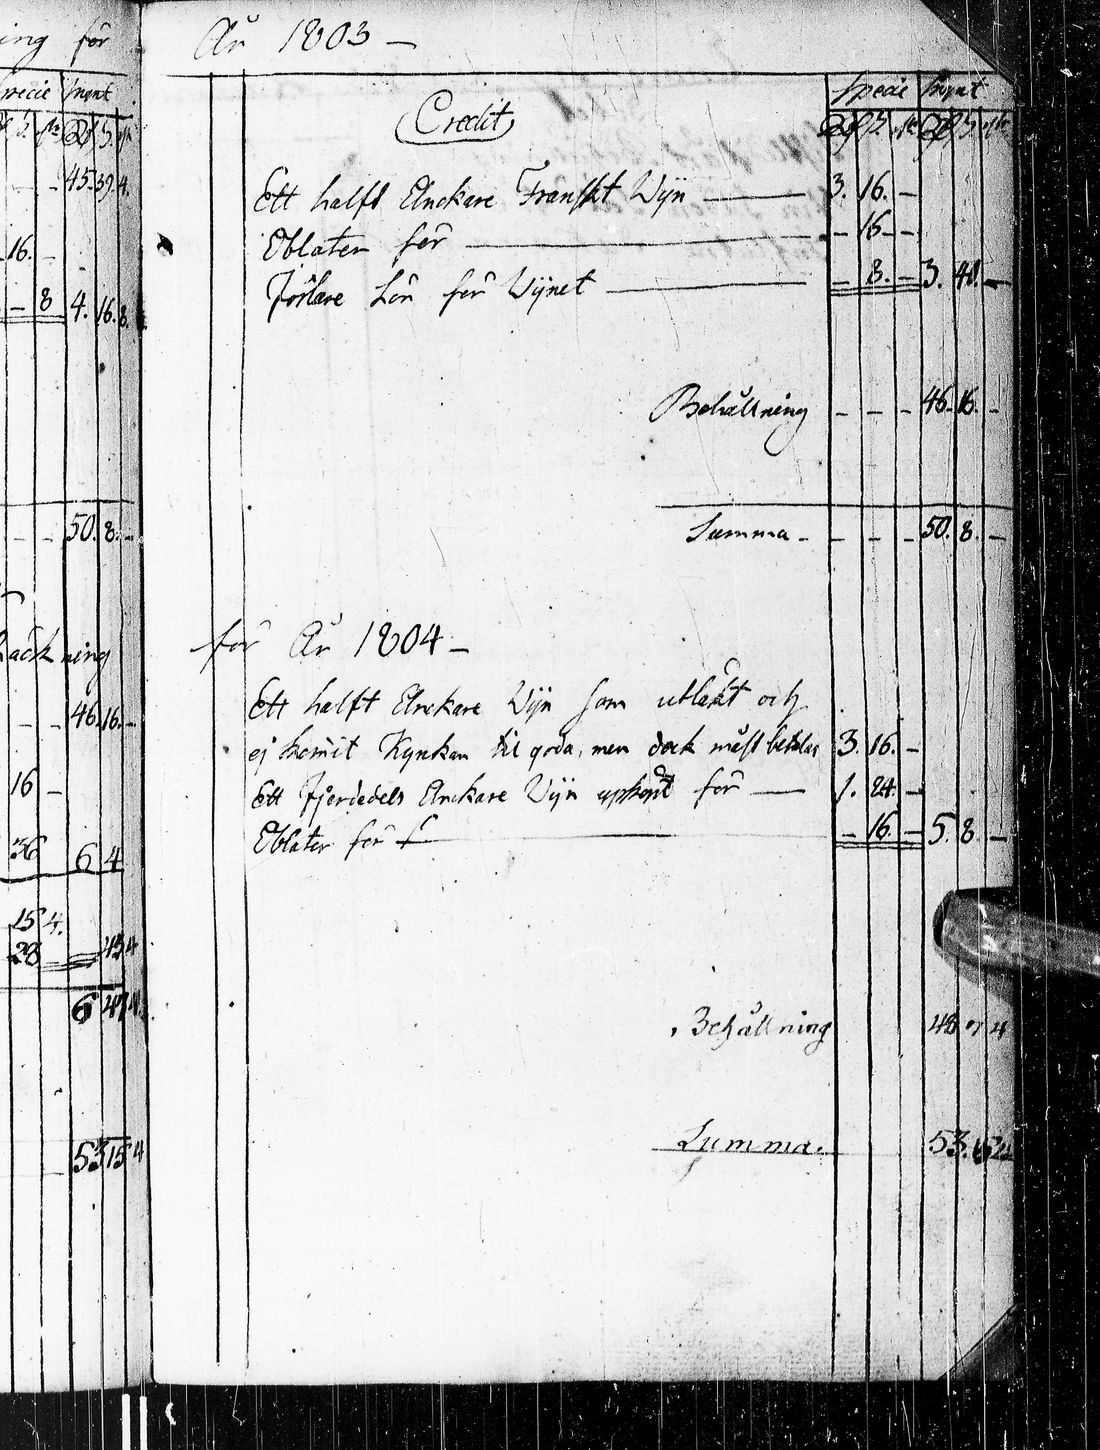 ning för
Specie Sumt
45. 39. 4.
16. -
- 8 4. 16. 8.
- - 50. 8. -
Räckning
- - 46. 16. -
16 -
36 6 4
15 4.
28 45 4
6 47 4.
53 15 4
År 1803 -
Credit
Specie Sumt
Ett halft Anckare Franskt Wijn 3. 16. -
Oblater för - 16 - -
Förlare Lön för Wijnet - 8. - 3. 40. -
Behållning - - - 46. 16. -
Summa - - - - 50. 8. -
för År 1804 -
Ett halft Anckare Wijn som utläkt och
ej komit Kyrckan til goda, men dock måst betalas 3. 16. -
Ett Fjerdedels Anckare Wijn upköpt för 1. 24. -
Oblater för - 16. - 5. 8. -
Behållning 48 7 4
Summa. 53. 15